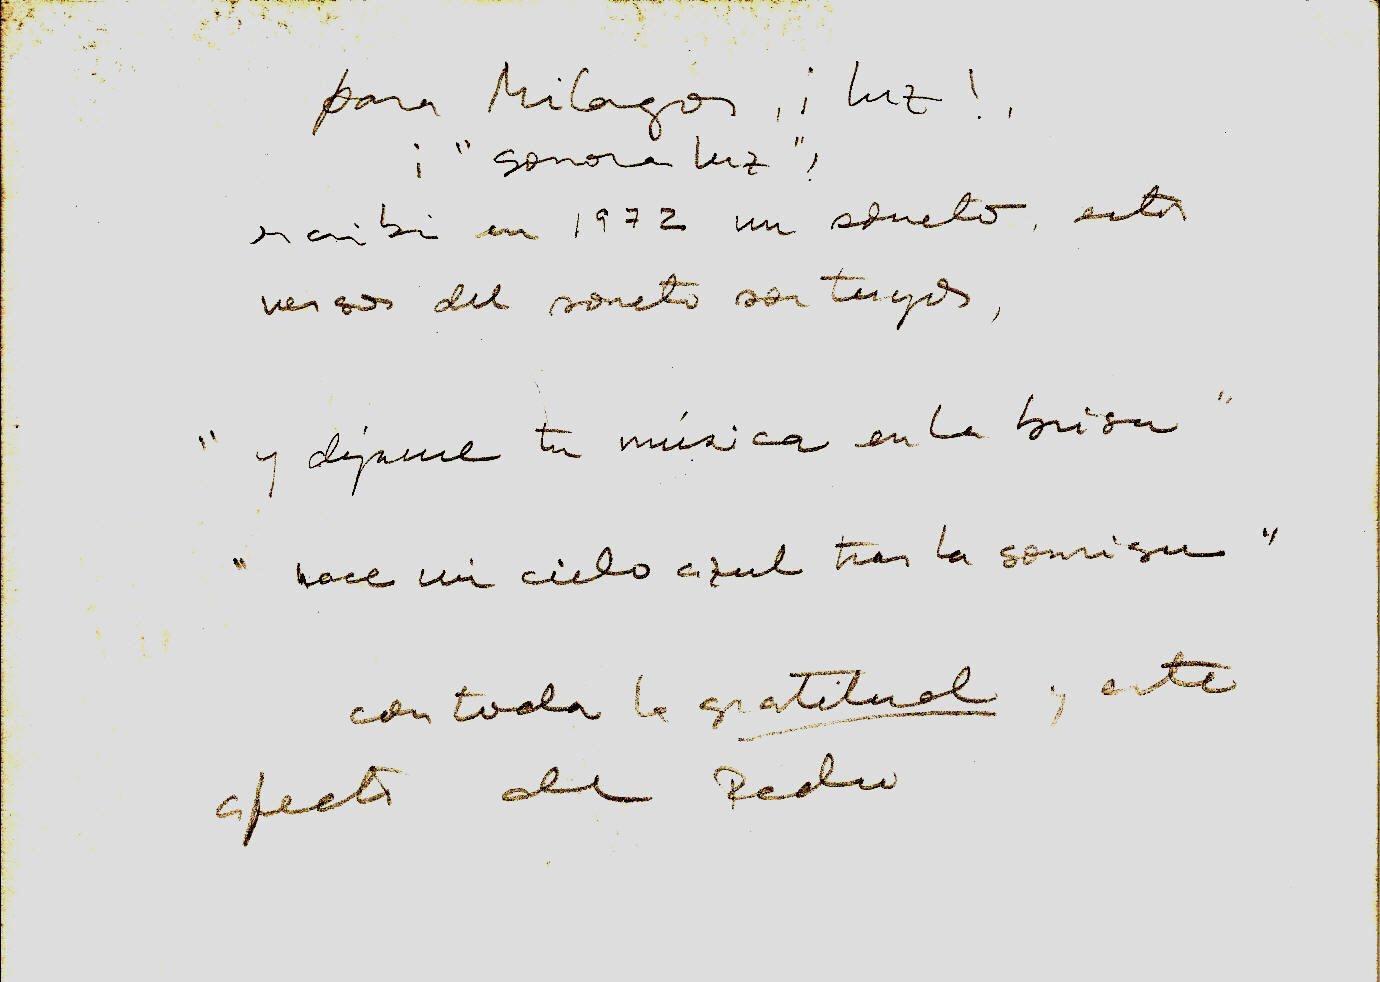 para Milagros, ¡luz!,
¡"sonora luz"!
escribí en 1972 un soneto, estos
versos del soneto son tuyos,
"y déjame tu música en la brisa"
"nace un cielo azul tras la sonrisa"
con toda la gratitud y este
afecto de Pedro